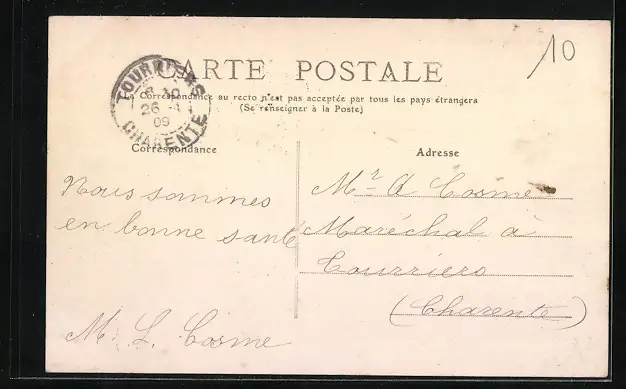 10
CARTE POSTALE
Correspondance au recto n'est pas acceptée par tous les pays étrangers
(Se renseigner à la Poste)
TOURRIERS
26
09
CHARENTE
Correspondance
Adresse
Nous sommes
en bonne santé
M. L. Cosme
Mr A Cosme
Maréchal à
Tourriers
(Charente)